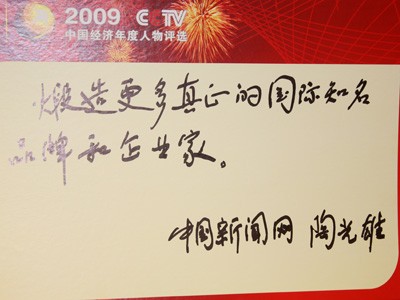 2009 CCTV
中国经济年度人物评选
煅造更多真正的国际知名
品牌和企业家。
中国新闻网 陶光雄